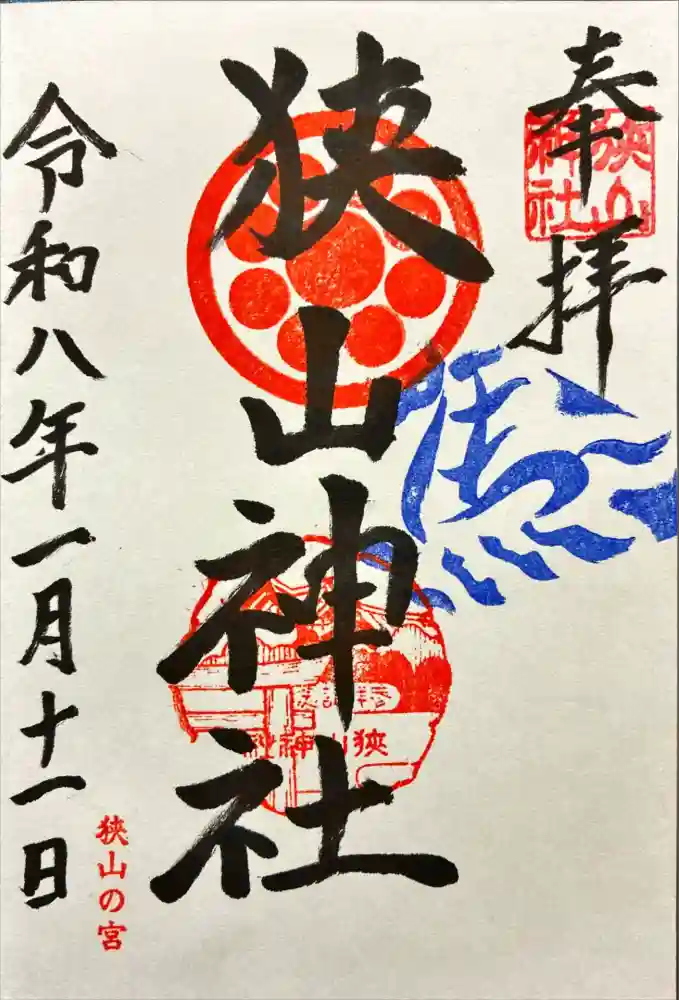 奉拝
狭山
神社
狭山神社
参拝記念
狭山神社
令和八年一月十一日
狭山の宮